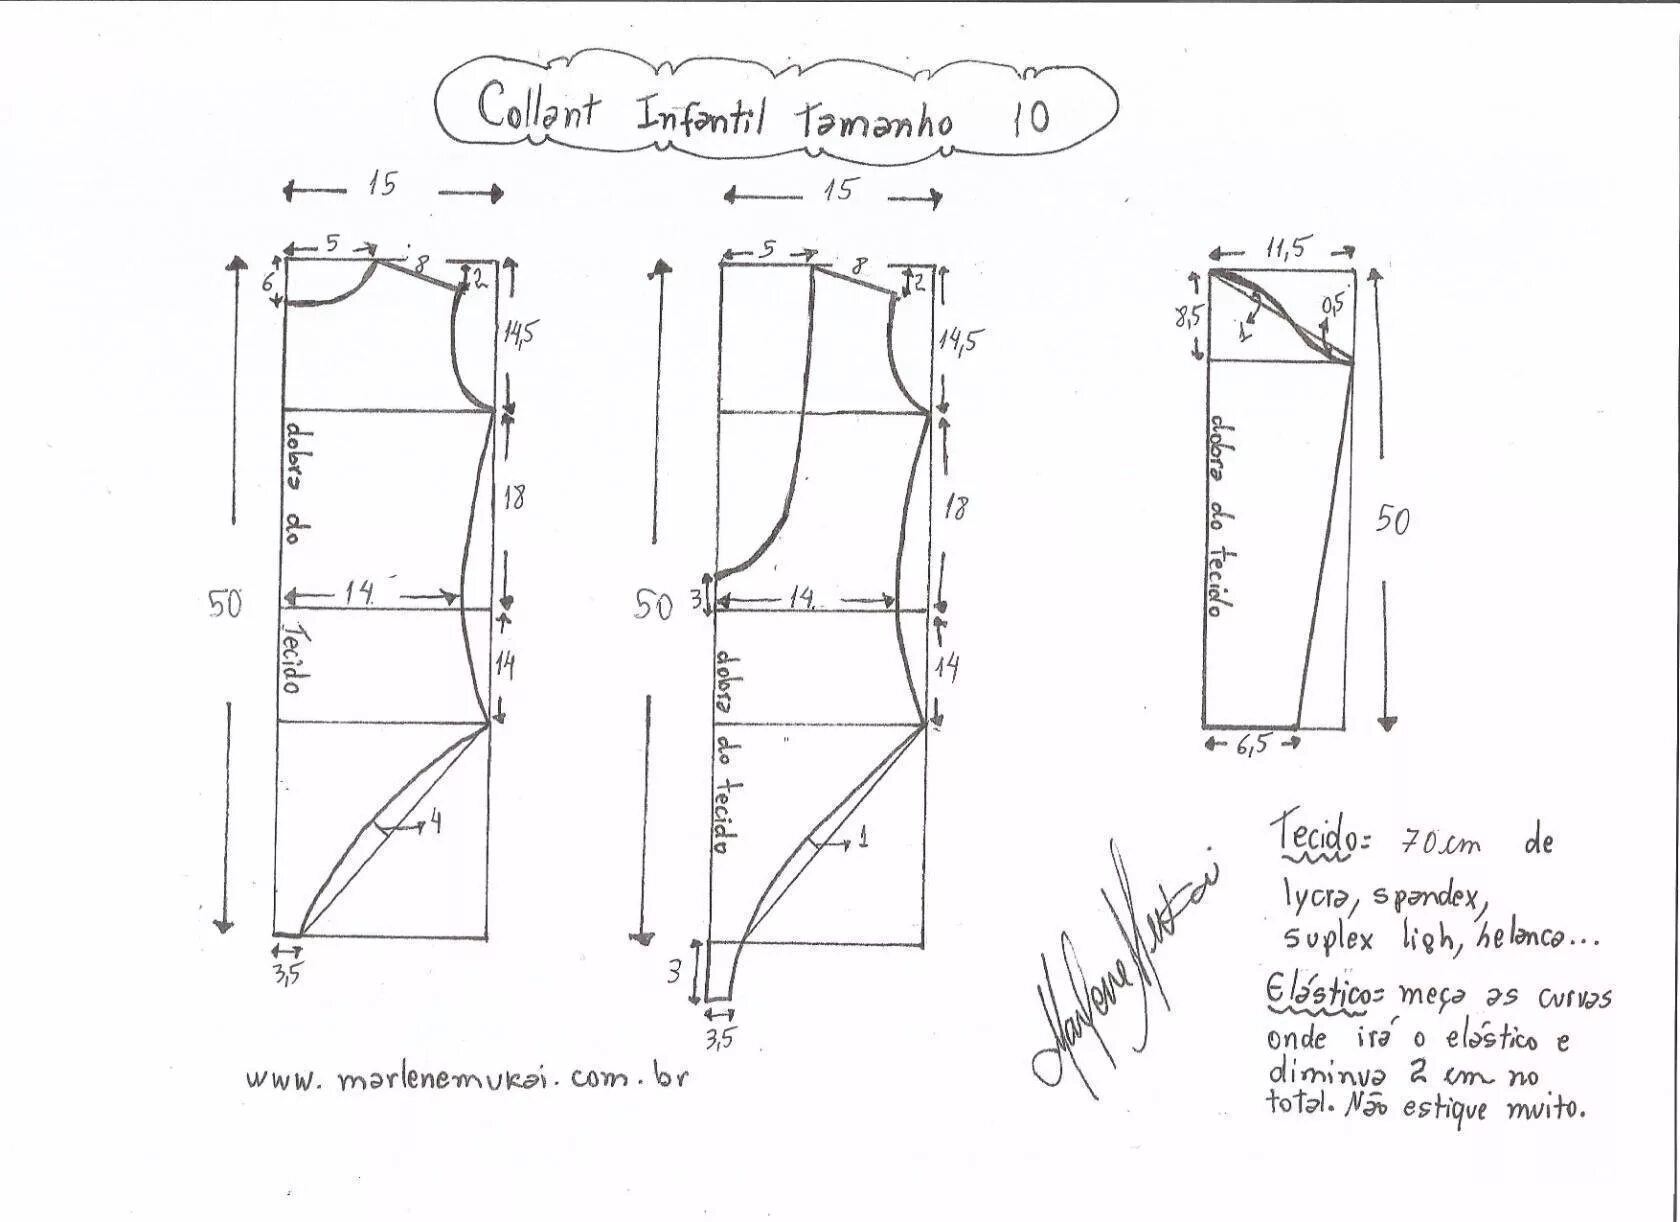 Collant Infantil Tamanho 10
15
15
5
8
2
6
14,5
dobra do
18
14
50
Tecido
14
4
3,5
5
8
2
14,5
18
3
14
50
dobra do tecido
14
1
3
3,5
11,5
8,5
1
0,5
dobra do tecido
50
6,5
Tecido= 70 cm de
lycra, spandex,
suplex ligh, helanca...
Elástico= meça as curvas
onde irá o elástico e
diminua 2 cm no
total. Não estique muito.
Marlene Mukai
www.marlenemukai.com.br